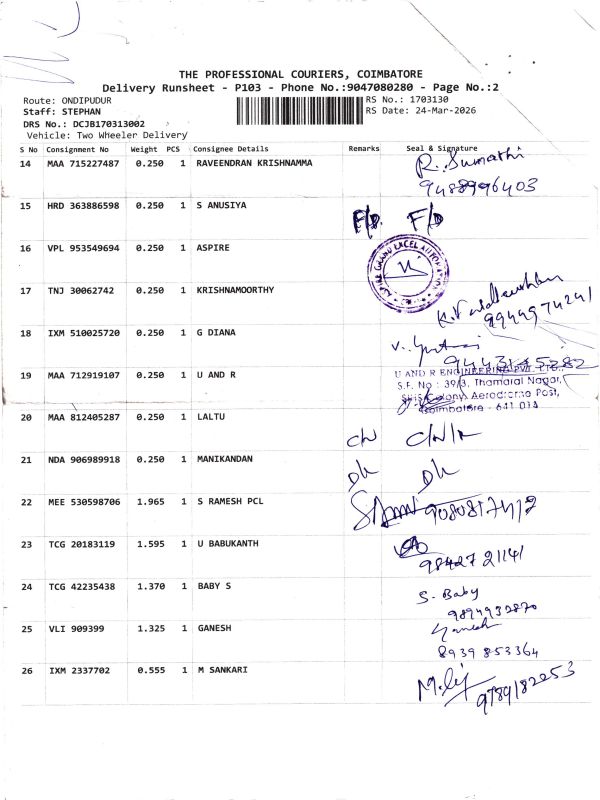 THE PROFESSIONAL COURIERS, COIMBATORE
Delivery Runsheet - P103 - Phone No.:9047080280 - Page No.:2
Route: ONDIPUDUR
Staff: STEPHAN
DRS No.: DCJB170313002
Vehicle: Two Wheeler Delivery
RS No.: 1703130
RS Date: 24-Mar-2026
S No Consignment No Weight PCS Consignee Details Remarks Seal & Signature
14 MAA 715227487 0.250 1 RAVEENDRAN KRISHNAMMA R. Sumathi
9488996403
15 HRD 363886598 0.250 1 S ANUSIYA F/D F/D
16 VPL 953549694 0.250 1 ASPIRE
17 TNJ 30062742 0.250 1 KRISHNAMOORTHY
9944974241
18 IXM 510025720 0.250 1 G DIANA
9443145282
19 MAA 712919107 0.250 1 U AND R U AND R ENGINEERING PVT. LTD.,
S.F. No : 39/3, Thamarai Nagar,
Colony, Aerodrome Post,
Coimbatore - 641 014
20 MAA 812405287 0.250 1 LALTU
21 NDA 906989918 0.250 1 MANIKANDAN
22 MEE 530598706 1.965 1 S RAMESH PCL 9080817412
23 TCG 20183119 1.595 1 U BABUKANTH
9842721141
24 TCG 42235438 1.370 1 BABY S S. Baby
9894932870
25 VLI 909399 1.325 1 GANESH Ganesh
8939 853364
26 IXM 2337702 0.555 1 M SANKARI
9789182253